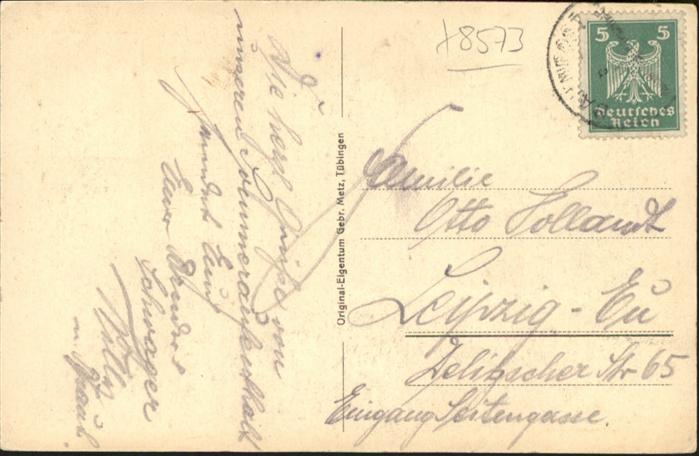 +8573
5 5
Deutsches
Reich
Die herzl. Grüße von
unserem Sommeraufenthalt
sendet Euch
Euer Bruder
Schwager
Willy
u. Frau.
Original-Eigentum Gebr. Metz, Tübingen
Familie
Otto Hollandt
Leipzig-Eu
Delitzscher Str 65
Eingang Seitengasse.